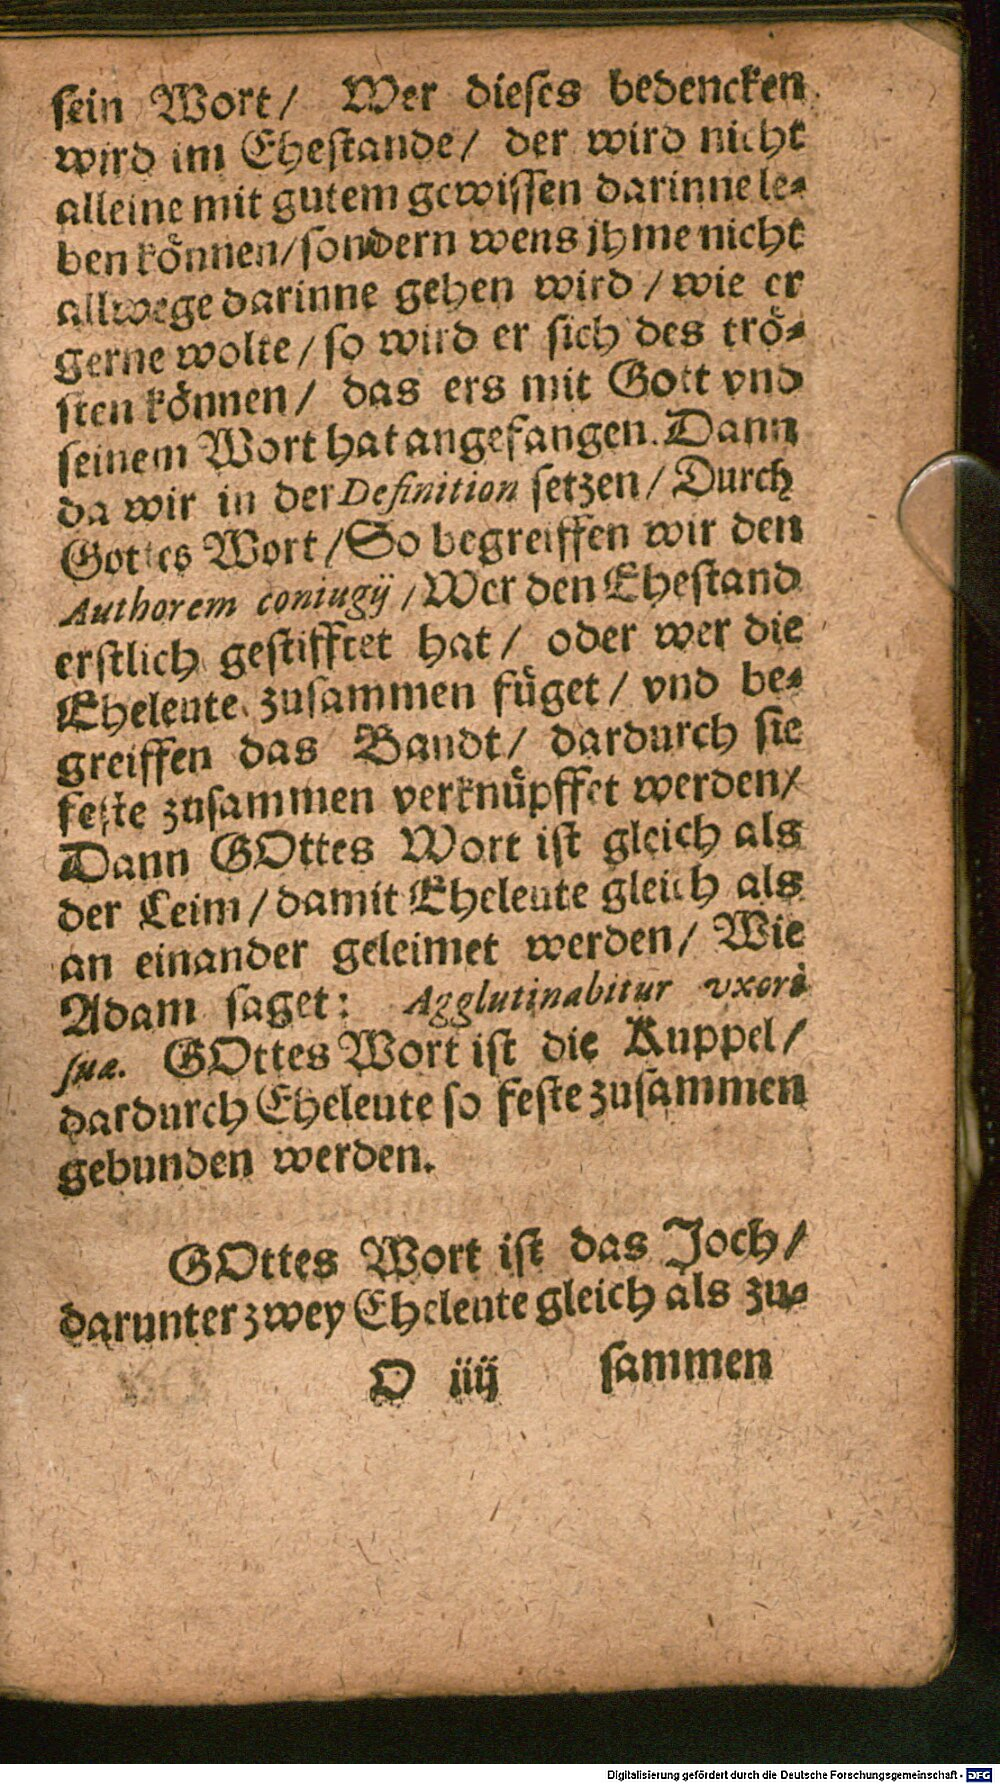 sein Wort/ Wer dieses bedencken
wird im Ehestande/ der wird nicht
alleine mit gutem gewissen darinne le-
ben können/sondern wens jhme nicht
allwege darinne gehen wird/wie er
gerne wolte/so wird er sich des trö-
sten können/ das ers mit Gott vnd
seinem Wort hat angefangen. Dann
da wir in der Definition setzen/Durch
Gottes Wort/So begreiffen wir den
Authorem coniugij/Wer den Ehestand
erstlich gestifftet hat/ oder wer die
Eheleute zusammen füget/ vnd be-
greiffen das Bandt/ dardurch sie
feste zusammen verknüpffet werden/
Dann GOttes Wort ist gleich als
der Leim/damit Eheleute gleich als
an einander geleimet werden/ Wie
Adam saget: Agglutinabitur vxori
suæ. GOttes Wort ist die Kuppel/
dardurch Eheleute so feste zusammen
gebunden werden.
GOttes Wort ist das Joch/
darunter zwey Eheleute gleich als zu-
O iiij sammen
Digitalisierung gefördert durch die Deutsche Forschungsgemeinschaft - DFG